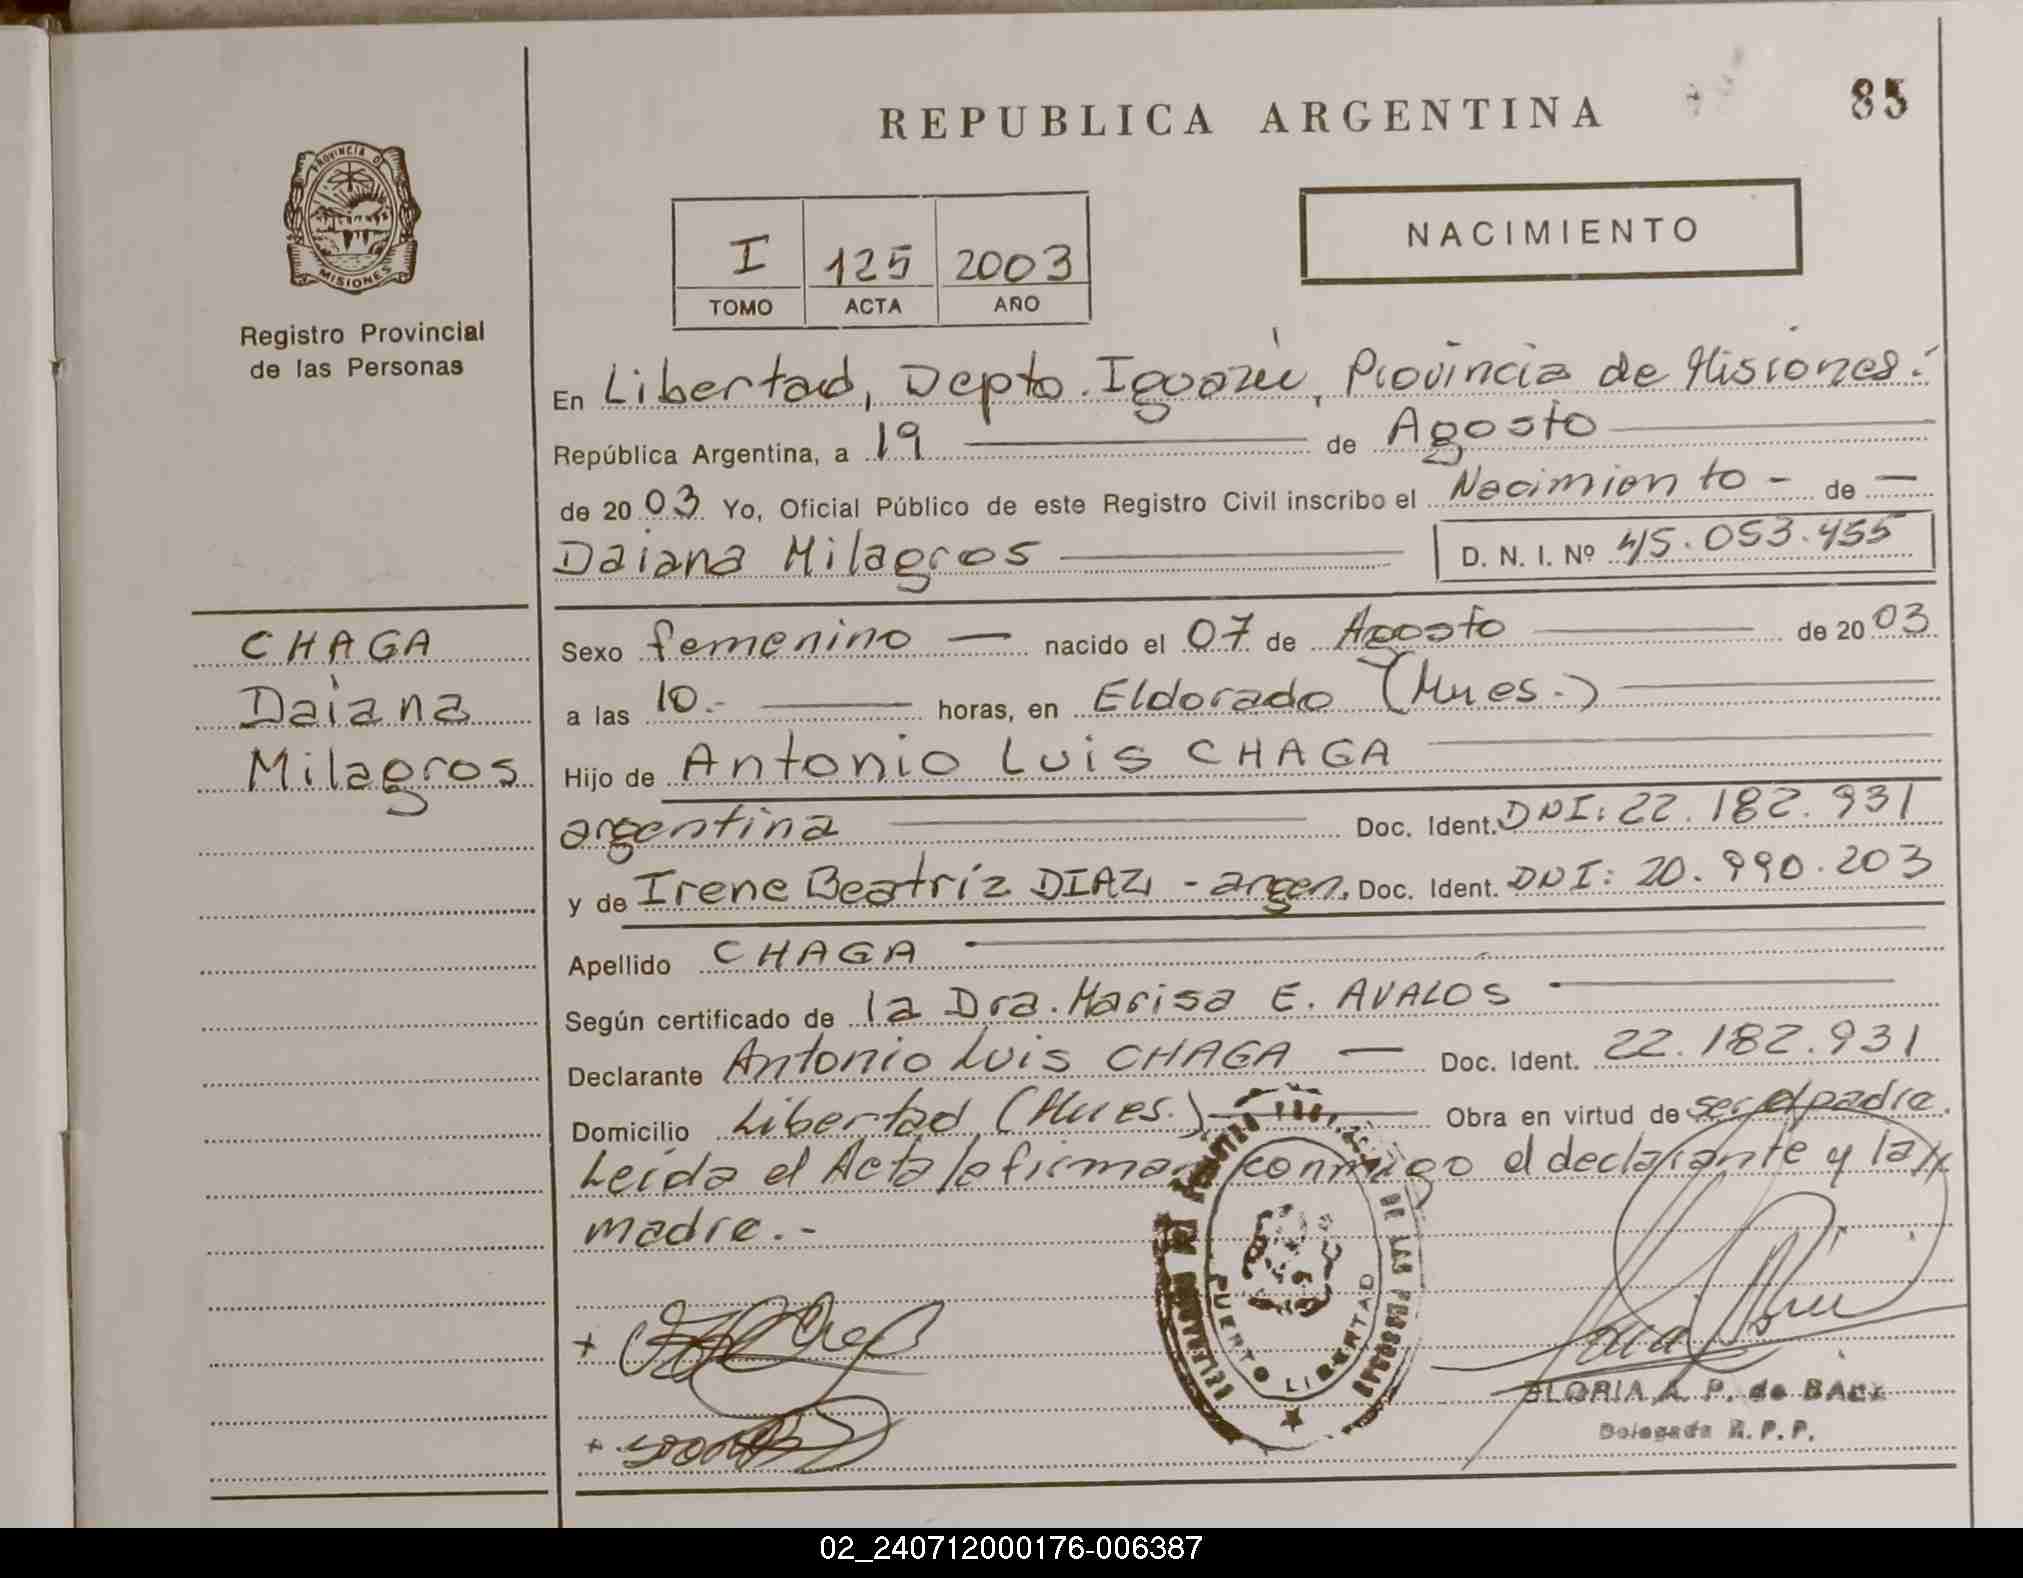 85
REPUBLICA ARGENTINA
PROVINCIA DE
MISIONES
Registro Provincial
de las Personas
I 125 2003
TOMO ACTA AÑO
NACIMIENTO
En Libertad, Depto. Iguazú, Provincia de Misiones.-
República Argentina, a 19 de Agosto
de 2003 Yo, Oficial Público de este Registro Civil inscribo el Nacimiento - de —
Daiana Milagros D. N. I. Nº 45.053.455
CHAGA
Daiana
Milagros
Sexo femenino — nacido el 07 de Agosto de 2003
a las 10.- horas, en Eldorado (Mnes.)
Hijo de Antonio Luis CHAGA
argentina Doc. Ident. DNI: 22.182.931
y de Irene Beatríz DIAZ - argen. Doc. Ident. DNI: 20.990.203
Apellido CHAGA
Según certificado de la Dra. Marisa E. AVALOS
Declarante Antonio Luis CHAGA — Doc. Ident. 22.182.931
Domicilio Libertad (Mnes.) Obra en virtud de ser el padre.
Leída el Acta la firman conmigo el declarante y la
madre.-
DE LAS PERSONAS
PUERTO LIBERTAD
GLORIA A. P. de BAEZ
Delegada R. P. P.
02_240712000176-006387